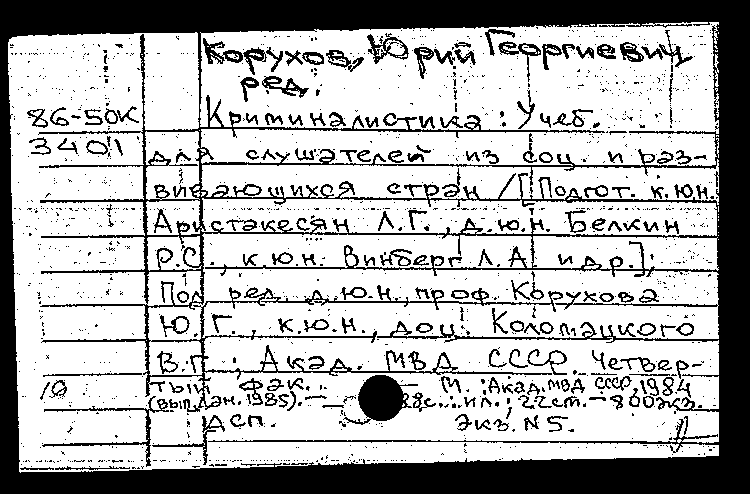 Корухов, Юрий Георгиевич
ред.
86-50К Криминалистика : Учеб.
3401 для слушателей из соц. и раз-
вивающихся стран /[Подгот. к.ю.н.
Аристакесян Л.Г., д.ю.н. Белкин
Р.С., к.ю.н. Винберг Л.А. и др.];
Под ред. д.ю.н., проф. Корухова
Ю.Г., к.ю.н., доц. Коломацкого
В.Г.; Акад. МВД СССР. Четвер-
тый фак. — М. : Акад. МВД СССР, 1984
(вып. дан. 1985). — 28с. : ил.; 22 см. — 800 экз.
ДСП. Экз. N 5.